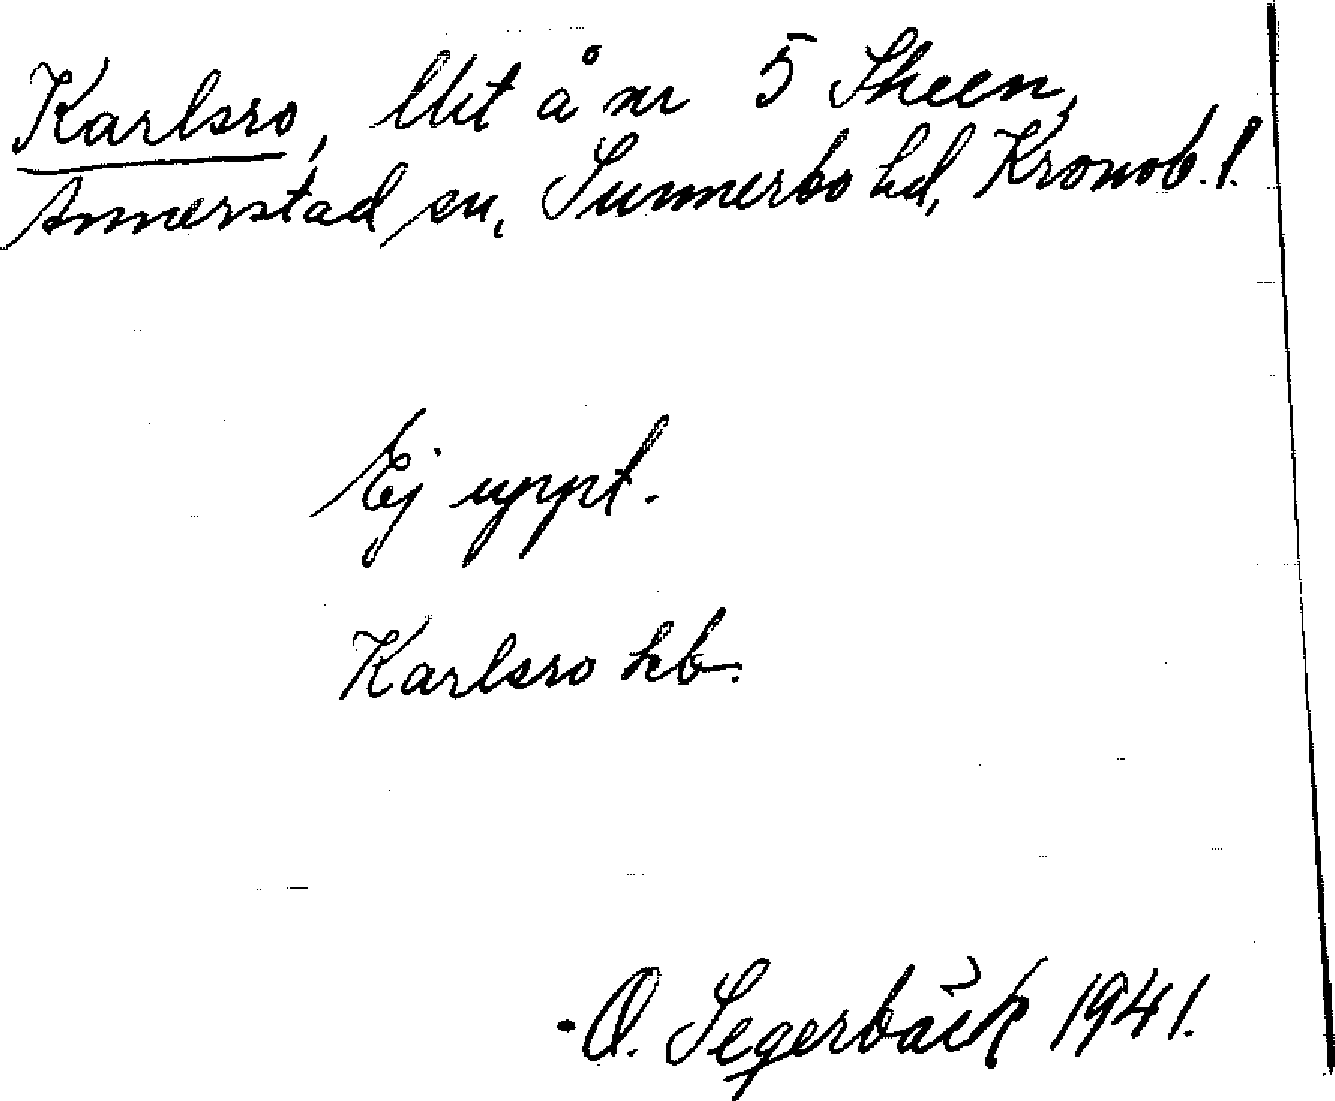 Karlsro, Utst å nr 5 Skeen,
Annerstad sn, Sunnerbo hd, Kronob. l.
Ej uppt.
Karlsro hb.
O. Segerbäck 1941.